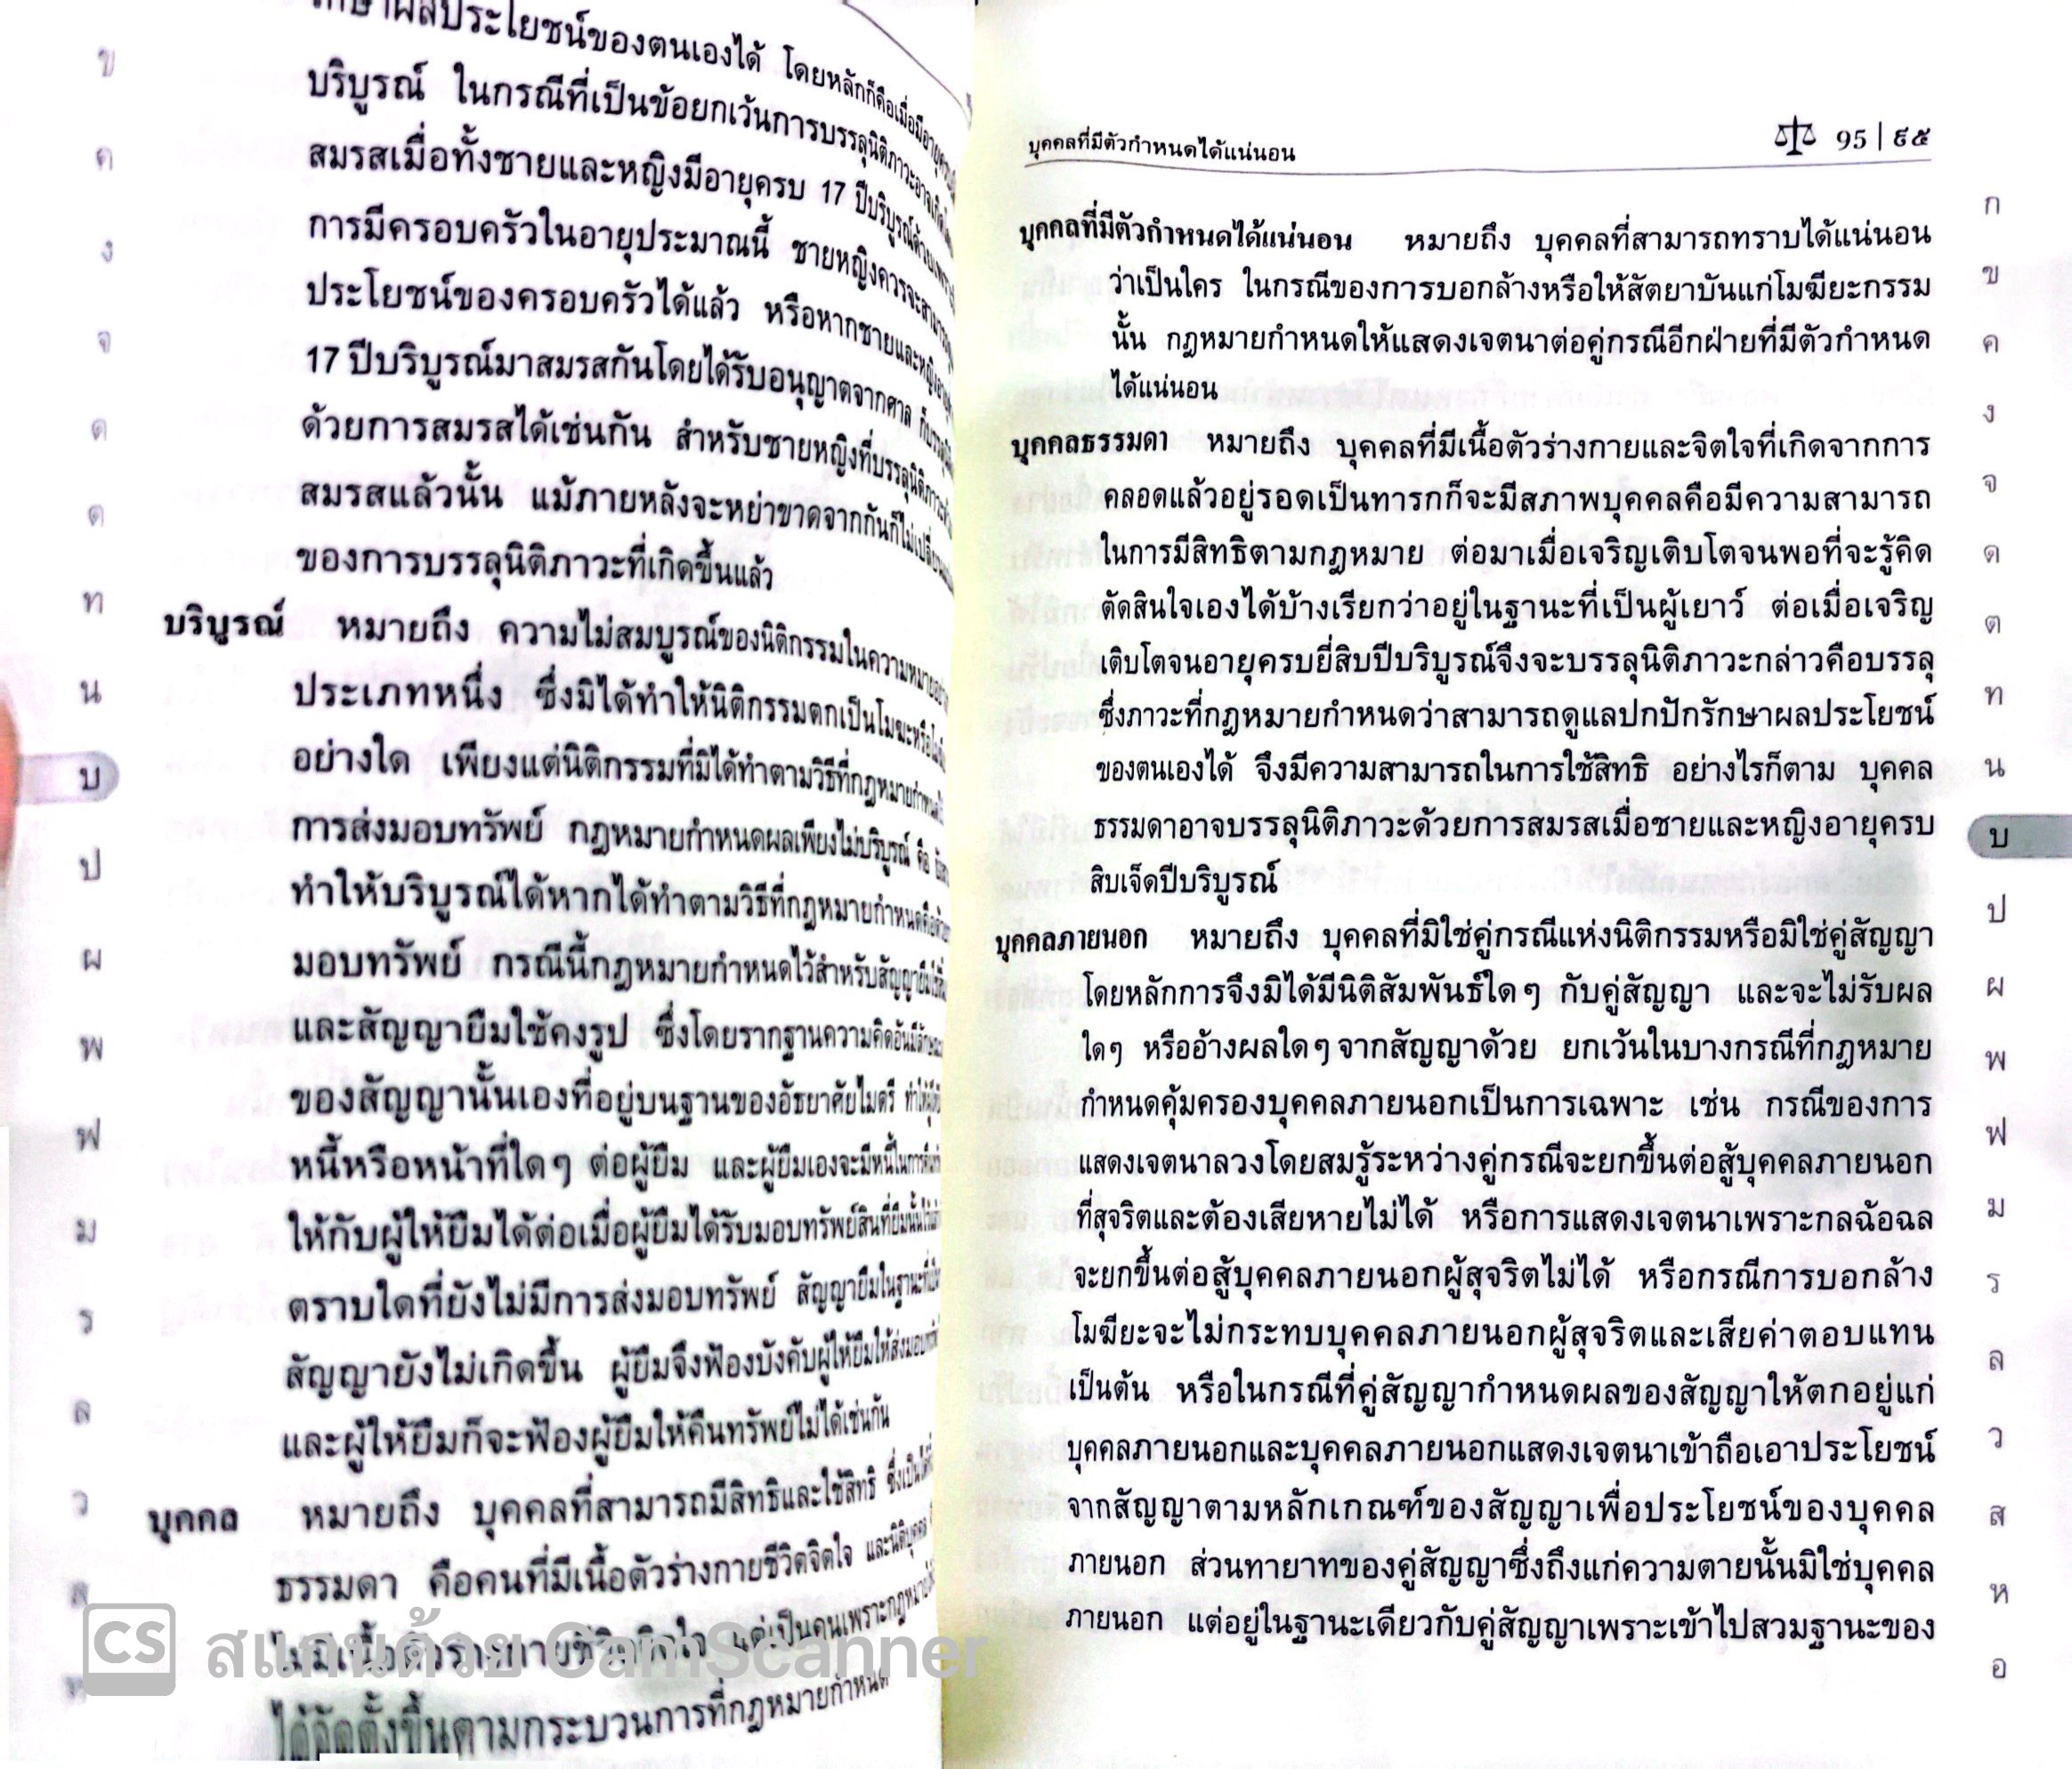 ข
ค
ง
จ
ด
ต
ท
น
บ
ป
ผ
พ
ฟ
ม
ร
ล
ว
ส
ผลประโยชน์ของตนเองได้ โดยหลักก็คือเมื่อมีอายุครบ
บริบูรณ์ ในกรณีที่เป็นข้อยกเว้นการบรรลุนิติภาวะอาจเกิด
สมรสเมื่อทั้งชายและหญิงมีอายุครบ 17 ปีบริบูรณ์ด้วยเพราะ
การมีครอบครัวในอายุประมาณนี้ ชายหญิงควรจะสามารถ
ประโยชน์ของครอบครัวได้แล้ว หรือหากชายและหญิงอายุ
17 ปีบริบูรณ์มาสมรสกันโดยได้รับอนุญาตจากศาล ก็บรรลุ
ด้วยการสมรสได้เช่นกัน สำหรับชายหญิงที่บรรลุนิติภาวะด้วย
สมรสแล้วนั้น แม้ภายหลังจะหย่าขาดจากกันก็ไม่เปลี่ยน
ของการบรรลุนิติภาวะที่เกิดขึ้นแล้ว
บริบูรณ์ หมายถึง ความไม่สมบูรณ์ของนิติกรรมในความหมายอย่าง
ประเภทหนึ่ง ซึ่งมิได้ทำให้นิติกรรมตกเป็นโมฆะหรือ
อย่างใด เพียงแต่นิติกรรมที่มิได้ทำตามวิธีที่กฎหมายกำหนด
การส่งมอบทรัพย์ กฎหมายกำหนดผลเพียงไม่บริบูรณ์ คือ
ทำให้บริบูรณ์ได้หากได้ทำตามวิธีที่กฎหมายกำหนดคือ
มอบทรัพย์ กรณีนี้กฎหมายกำหนดไว้สำหรับสัญญายืม
และสัญญายืมใช้คงรูป ซึ่งโดยรากฐานความคิดอันมี
ของสัญญานั้นเองที่อยู่บนฐานของอัธยาศัยไมตรี ทำให้
หนี้หรือหน้าที่ใดๆ ต่อผู้ยืม และผู้ยืมเองจะมีหนี้ในการ
ให้กับผู้ให้ยืมได้ต่อเมื่อผู้ยืมได้รับมอบทรัพย์สินที่ยืมนั้น
ตราบใดที่ยังไม่มีการส่งมอบทรัพย์ สัญญายืมในฐานะที่
สัญญายังไม่เกิดขึ้น ผู้ยืมจึงฟ้องบังคับผู้ให้ยืมให้ส่งมอบ
และผู้ให้ยืมก็จะฟ้องผู้ยืมให้คืนทรัพย์ไม่ได้เช่นกัน
บุคคล หมายถึง บุคคลที่สามารถมีสิทธิและใช้สิทธิ ซึ่งเป็นได้
ธรรมดา คือคนที่มีเนื้อตัวร่างกายชีวิตจิตใจ และนิติบุคคล
ไม่มีเนื้อตัวร่างกายชีวิตจิตใจ แต่เป็นคนเพราะกฎหมาย
ได้จัดตั้งขึ้นตามกระบวนการที่กฎหมายกำหนด
CS สแกนด้วย CamScanner
บุคคลที่มีตัวกำหนดได้แน่นอน 95 | ๙๕
บุคคลที่มีตัวกำหนดได้แน่นอน หมายถึง บุคคลที่สามารถทราบได้แน่นอน
ว่าเป็นใคร ในกรณีของการบอกล้างหรือให้สัตยาบันแก่โมฆียะกรรม
นั้น กฎหมายกำหนดให้แสดงเจตนาต่อคู่กรณีอีกฝ่ายที่มีตัวกำหนด
ได้แน่นอน
บุคคลธรรมดา หมายถึง บุคคลที่มีเนื้อตัวร่างกายและจิตใจที่เกิดจากการ
คลอดแล้วอยู่รอดเป็นทารกก็จะมีสภาพบุคคลคือมีความสามารถ
ในการมีสิทธิตามกฎหมาย ต่อมาเมื่อเจริญเติบโตจนพอที่จะรู้คิด
ตัดสินใจเองได้บ้างเรียกว่าอยู่ในฐานะที่เป็นผู้เยาว์ ต่อเมื่อเจริญ
เติบโตจนอายุครบยี่สิบปีบริบูรณ์จึงจะบรรลุนิติภาวะกล่าวคือบรรลุ
ซึ่งภาวะที่กฎหมายกำหนดว่าสามารถดูแลปกปักรักษาผลประโยชน์
ของตนเองได้ จึงมีความสามารถในการใช้สิทธิ อย่างไรก็ตาม บุคคล
ธรรมดาอาจบรรลุนิติภาวะด้วยการสมรสเมื่อชายและหญิงอายุครบ
สิบเจ็ดปีบริบูรณ์
บุคคลภายนอก หมายถึง บุคคลที่มิใช่คู่กรณีแห่งนิติกรรมหรือมิใช่คู่สัญญา
โดยหลักการจึงมิได้มีนิติสัมพันธ์ใดๆ กับคู่สัญญา และจะไม่รับผล
ใดๆ หรืออ้างผลใดๆ จากสัญญาด้วย ยกเว้นในบางกรณีที่กฎหมาย
กำหนดคุ้มครองบุคคลภายนอกเป็นการเฉพาะ เช่น กรณีของการ
แสดงเจตนาลวงโดยสมรู้ระหว่างคู่กรณีจะยกขึ้นต่อสู้บุคคลภายนอก
ที่สุจริตและต้องเสียหายไม่ได้ หรือการแสดงเจตนาเพราะกลฉ้อฉล
จะยกขึ้นต่อสู้บุคคลภายนอกผู้สุจริตไม่ได้ หรือกรณีการบอกล้าง
โมฆียะจะไม่กระทบบุคคลภายนอกผู้สุจริตและเสียค่าตอบแทน
เป็นต้น หรือในกรณีที่คู่สัญญากำหนดผลของสัญญาให้ตกอยู่แก่
บุคคลภายนอกและบุคคลภายนอกแสดงเจตนาเข้าถือเอาประโยชน์
จากสัญญาตามหลักเกณฑ์ของสัญญาเพื่อประโยชน์ของบุคคล
ภายนอก ส่วนทายาทของคู่สัญญาซึ่งถึงแก่ความตายนั้นมิใช่บุคคล
ภายนอก แต่อยู่ในฐานะเดียวกับคู่สัญญาเพราะเข้าไปสวมฐานะของ
ก
ข
ค
ง
จ
ด
ต
ท
น
บ
ป
ผ
พ
ฟ
ม
ร
ล
ว
ส
ห
อ